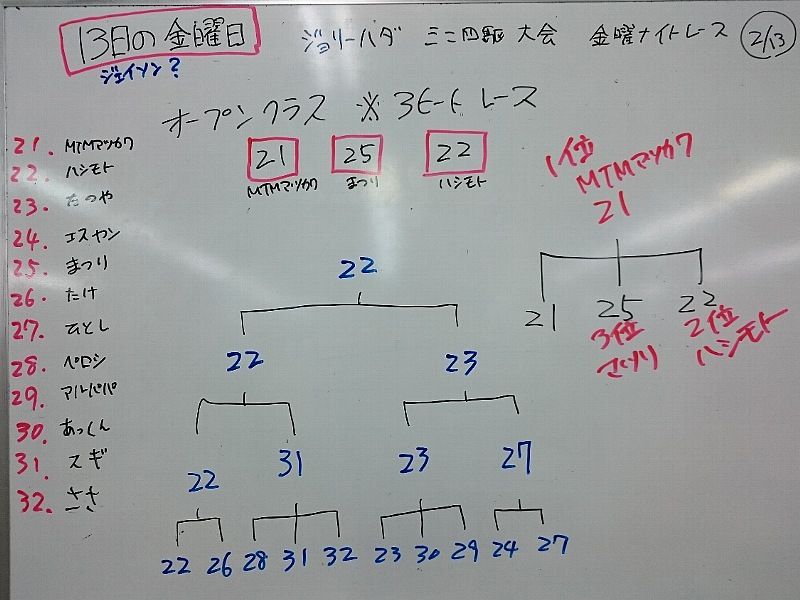 13日の金曜日
ジョリーハダ ミニ四駆 大会 金曜ナイトレース 2/13
ジェイソン?
オープンクラス ※3ヒートレース
21 25 22
MTMマツカワ まつり ハシモト
21. MTMマツカワ
22. ハシモト
23. たつや
24. エスヤン
25. まつり
26. たけ
27. ひとし
28. ペロシ
29. アルトパパ
30. あっくん
31. スギ
32. ささ
22
22 23
22 31 23 27
22 26 28 31 32 23 30 29 24 27
1位
MTMマツカワ
21
21 25 22
3位 2位
まつり ハシモト